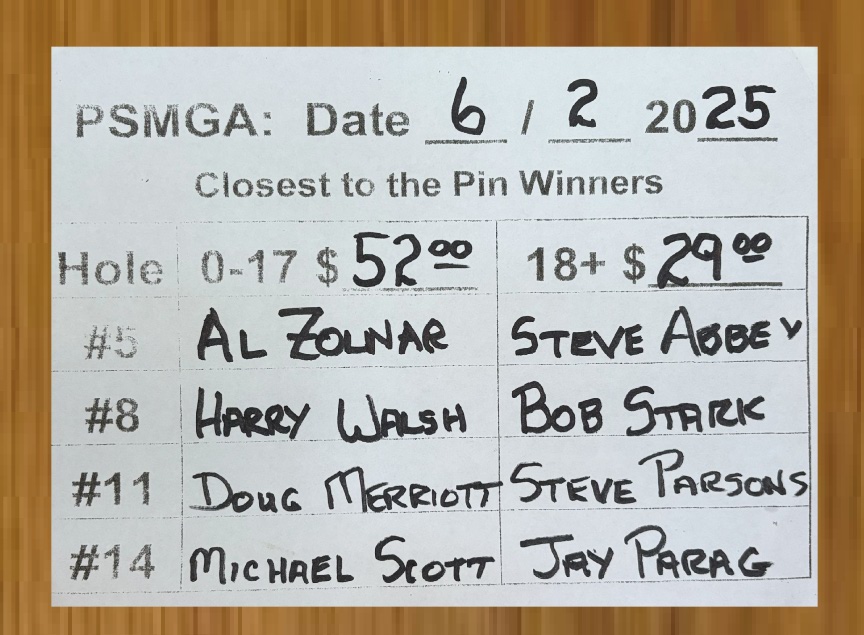 PSMGA: Date 6 / 2 2025
Closest to the Pin Winners
Hole 0-17 $ 52.00 18+ $ 29.00
#5 AL ZOLNAR STEVE ABBEY
#8 HARRY WALSH BOB STARK
#11 DOUG MERRIOTT STEVE PARSONS
#14 MICHAEL SCOTT JAY PARAG